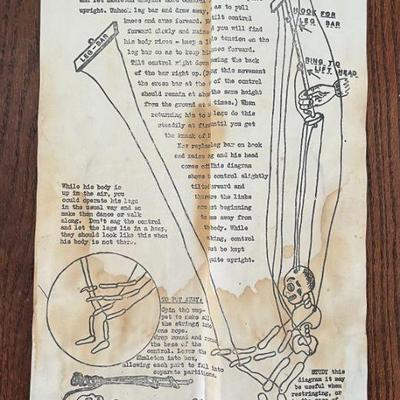 upright. Unhook leg bar and draw away, as to pull
knees and arms forward. tilt control
forward and you will find
his body rises - keep a tension on the
leg bar so as to keep forward.
Tilt control right down the back
of bar right up. (this movement
the cross bar at the of the control
should remain at about the same height
from the ground at times.) When
returning him to legs do this
steadily at first until you get
the knack of
Now replace leg bar on hook
and raise and his head
comes This diagram
shows control slightly
tilted forward and
the limbs
beginning
to move away from
body. While
walking, control
must be kept
quite upright.
HOOK FOR
LEG BAR
RING TO
LIFT HEAD
LEG-BAR
While his body is
up in the air, you
could operate his legs
in the usual way and so
make them dance or walk
along. Don't sag the control
and let the legs lie in a heap,
they should look like this when
his body is not there.
TO PUT AWAY:
Spin the pup-
pet to make all
the strings into
one rope.
Wrap round and round
the base of the
control. Lower the
Skeleton into box,
allowing each part to fall into
separate partitions.
STUDY this
diagram it may
be useful when
restringing, or